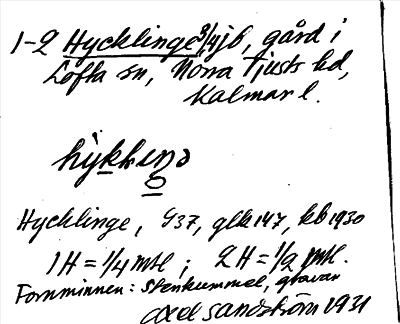 1-2 Hycklinge 3/4 jb, gård i
Lofta sn, Norra Tjusts hd,
Kalmar l.
Hycklinge, G37, glk 147, kb 1930
1 H = 1/4 mtl; 2 H = 1/2 mtl.
Fornminnen: Stenkummel, gravar
Axel Sandström 1931